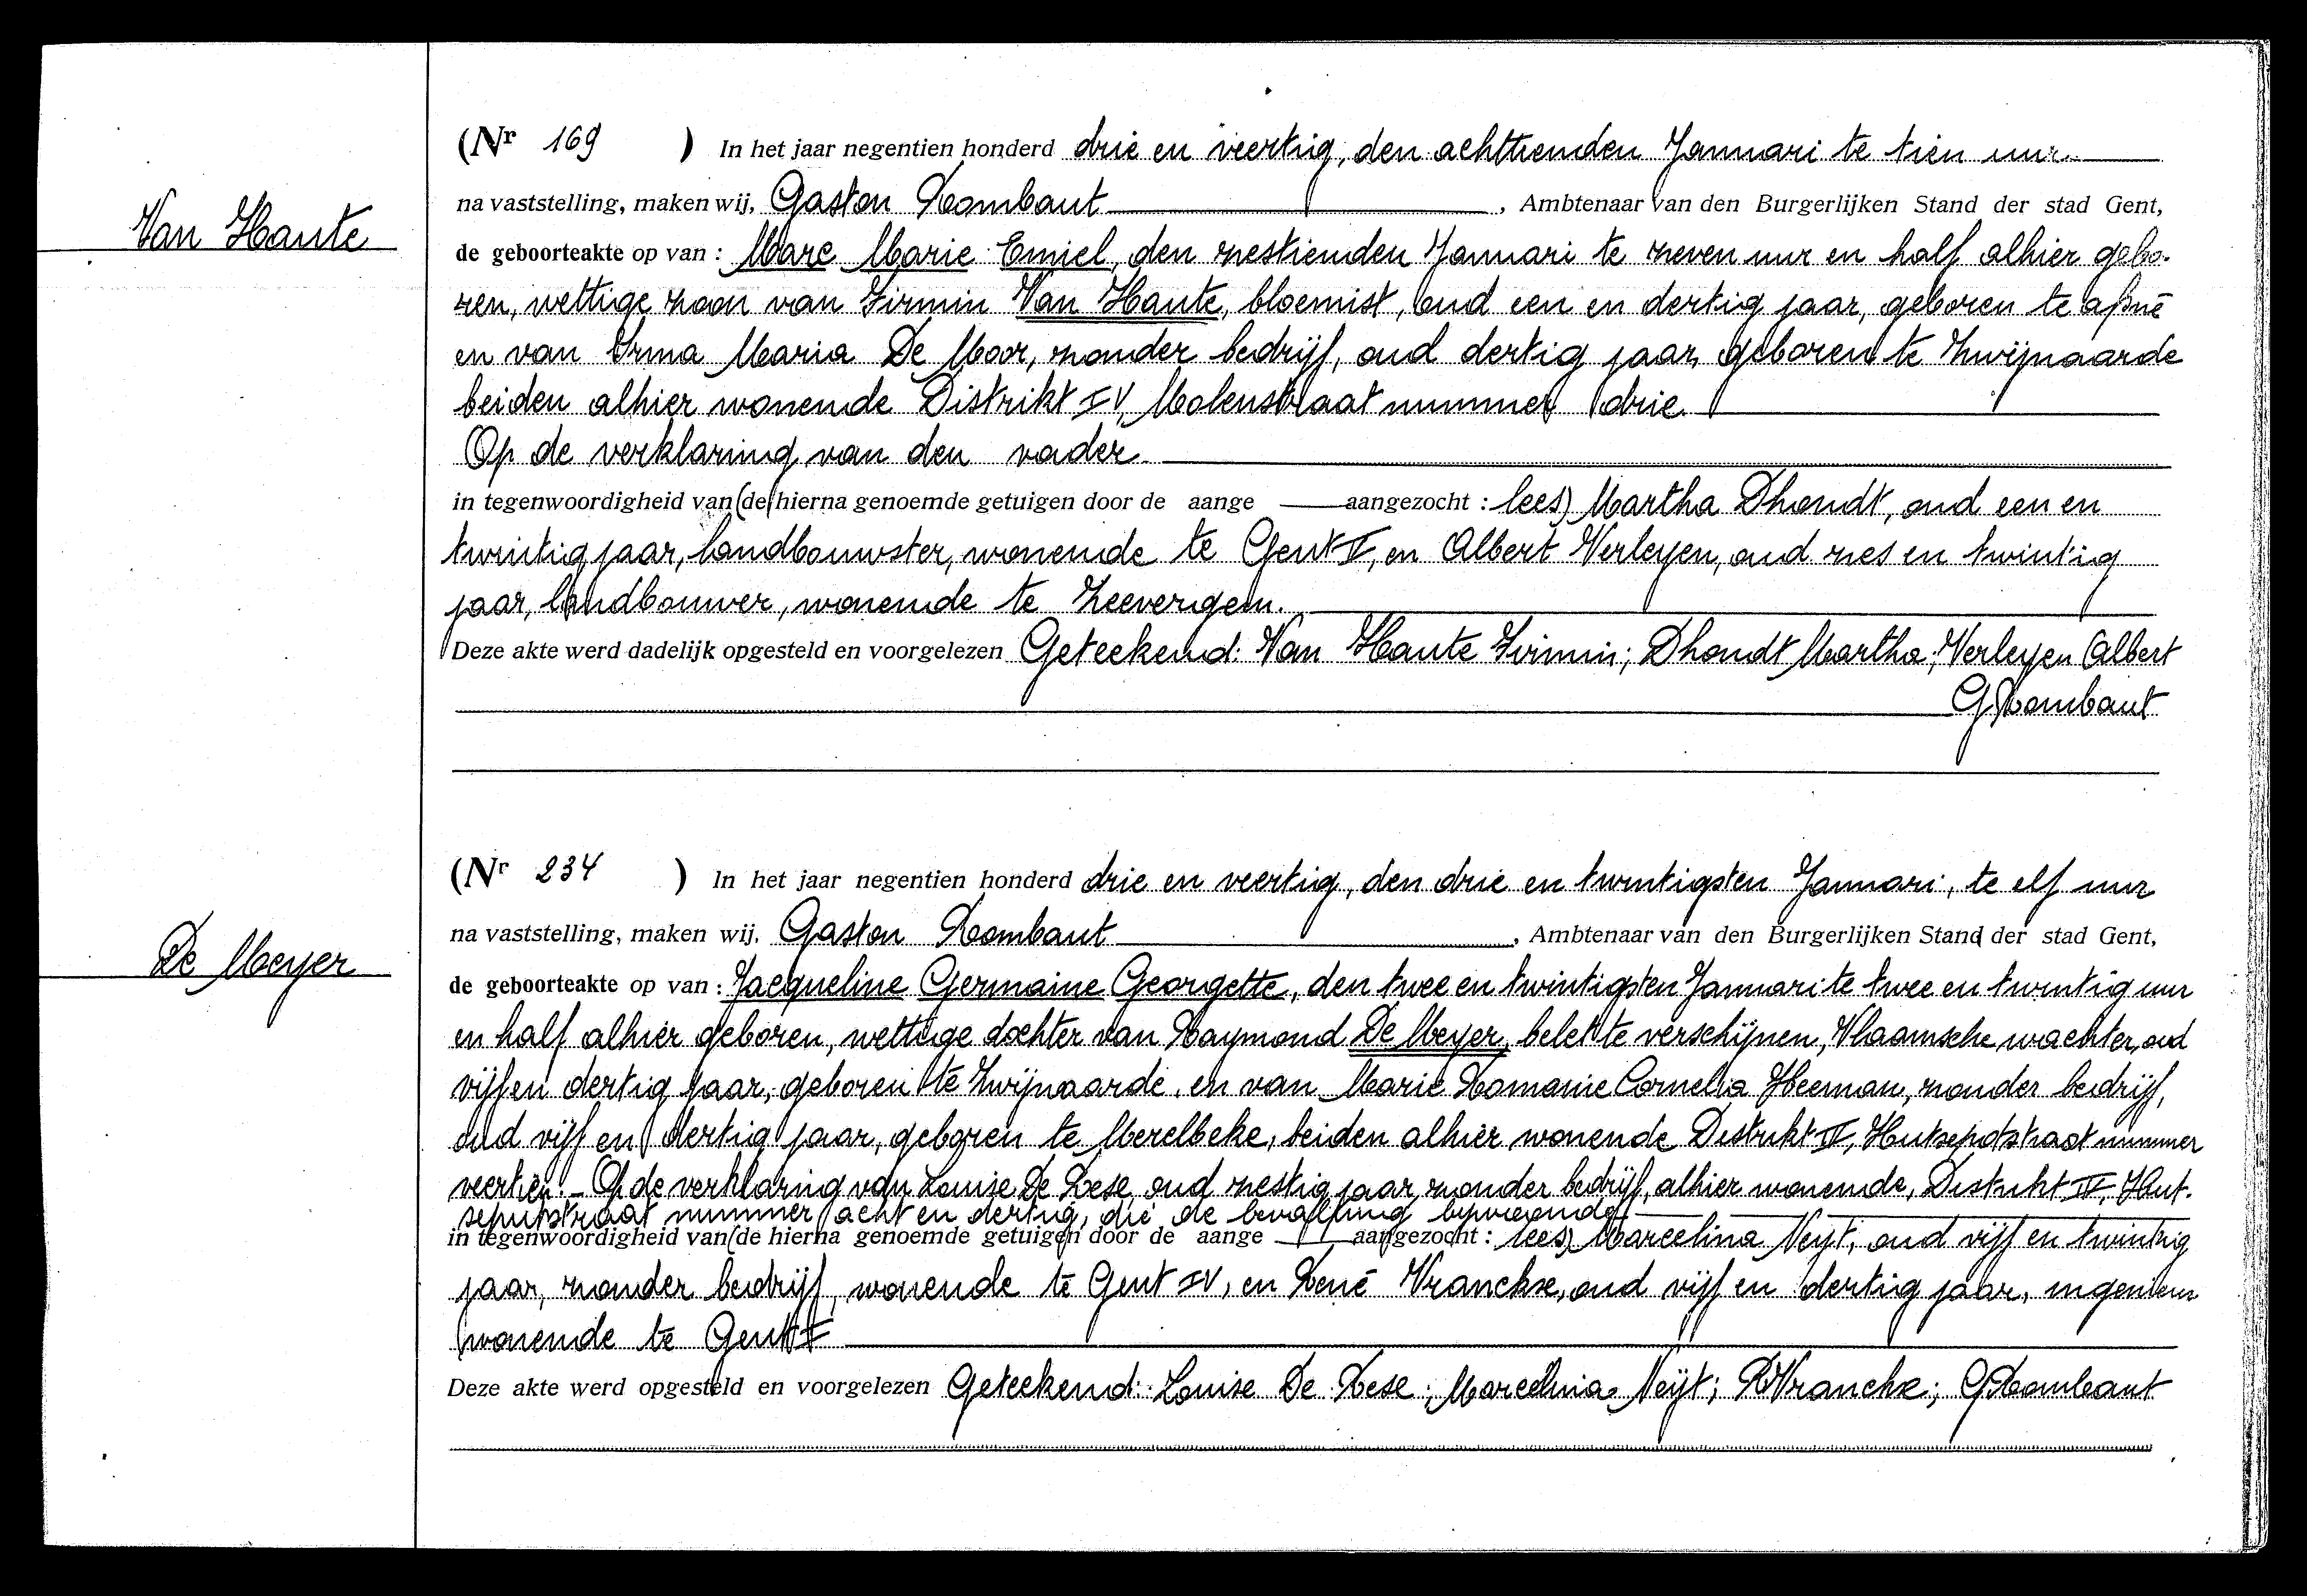 (Nr 169 ) In het jaar negentien honderd drie en veertig, den achttienden Januari te tien uur
Van Haute
na vaststelling, maken wij, Gaston Rombaut, Ambtenaar van den Burgerlijken Stand der stad Gent,
de geboorteakte op van : Marc Marie Emiel, den zestienden Januari te zeven uur en half alhier gebo-
ren, wettige zoon van Firmin Van Haute, bloemist, oud een en dertig jaar, geboren te Afsné
en van Irma Maria De Moor, zonder bedrijf, oud dertig jaar, geboren te Zwijnaarde
beiden alhier wonende Distrikt IV, Molenstraat nummer drie.
Op de verklaring van den vader.
in tegenwoordigheid van (de hierna genoemde getuigen door de aange aangezocht : lees) Martha Dhondt, oud een en
twintig jaar, landbouwster, wonende te Gent V, en Albert Verleyen, oud zes en twintig
jaar, landbouwer, wonende te Zeevergem.
Deze akte werd dadelijk opgesteld en voorgelezen Geteekend: Van Haute Firmin; Dhondt Martha; Verleyen Albert
G Rombaut
(Nr 234 ) In het jaar negentien honderd drie en veertig, den drie en twintigsten Januari, te elf uur
De Meyer
na vaststelling, maken wij, Gaston Rombaut, Ambtenaar van den Burgerlijken Stand der stad Gent,
de geboorteakte op van : Jacqueline Germaine Georgette, den twee en twintigsten Januari te twee en twintig uur
en half alhier geboren, wettige dochter van Raymond De Meyer, belet te verschijnen, Vlaamsche wachter, oud
vijf en dertig jaar, geboren te Zwijnaarde, en van Marie Romanie Cornelia Heeman, zonder bedrijf,
oud vijf en dertig jaar, geboren te Merelbeke, beiden alhier wonende Distrikt IV, Hutsepotstraat nummer
veertien. - Op de verklaring van Louise De Rese, oud zestig jaar, zonder bedrijf, alhier wonende, Distrikt IV, Hut-
seputstraat nummer acht en dertig, die de bevalling bijwoonde
in tegenwoordigheid van (de hierna genoemde getuigen door de aange aangezocht : lees) Marcelina Neyt, oud vijf en twintig
jaar, zonder bedrijf, wonende te Gent IV, en René Vranckx, oud vijf en dertig jaar, ingenieur
wonende te Gent
Deze akte werd opgesteld en voorgelezen Geteekend: Louise De Rese; Marcelina Neyt; R Vranckx; G Rombaut